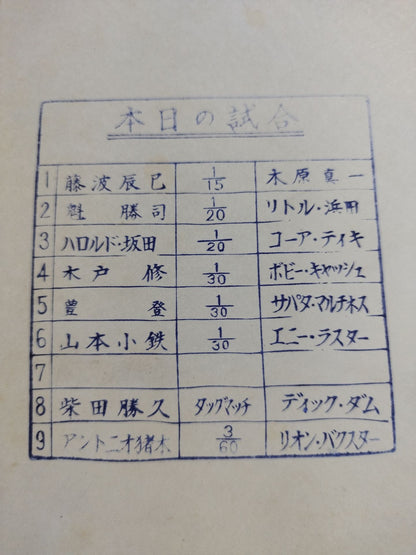 本日の試合
1 藤波辰巳 1/15 木原真一
2 魁勝司 1/20 リトル・浜田
3 ハロルド・坂田 1/20 コーア・ティキ
4 木戸修 1/30 ボビー・キャッシュ
5 豊登 1/30 サパタ・マルチネス
6 山本小鉄 1/30 エニー・ラスター
7
8 柴田勝久 タッグマッチ ディック・ダム
9 アントニオ猪木 3/60 リオン・バクスター